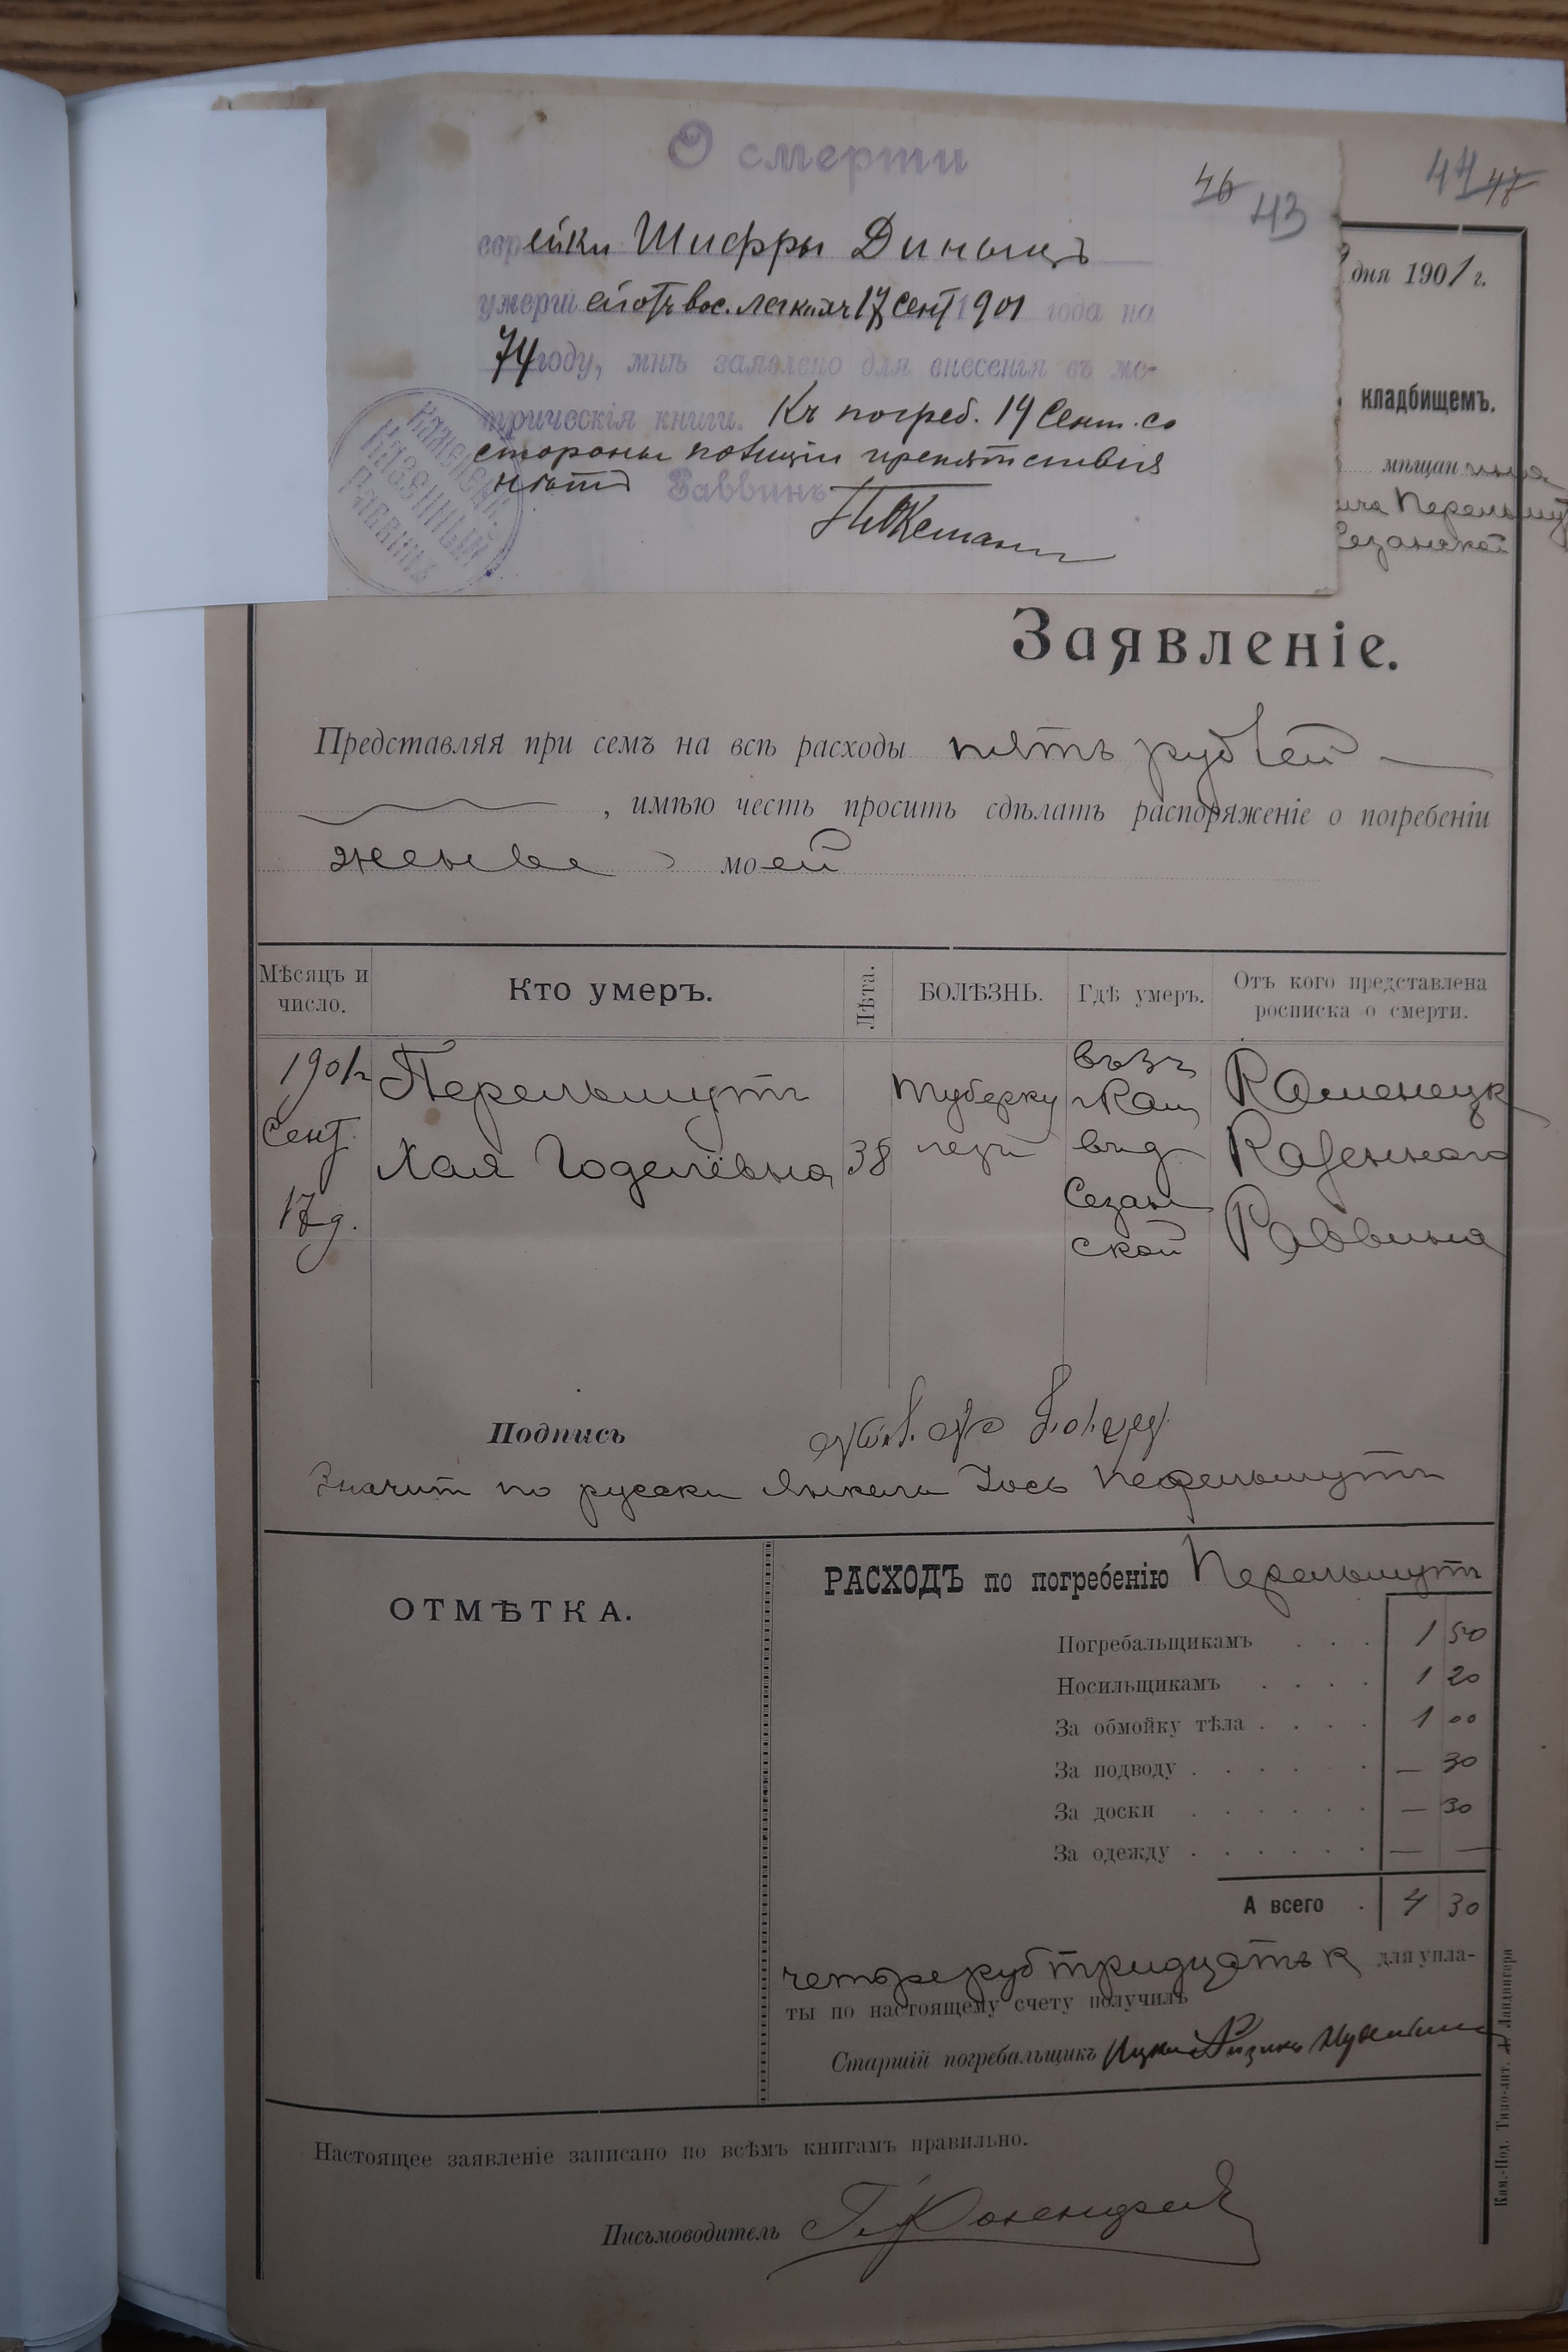 О смерти
46 43
44 47
еврейки Шифры Диныцъ
умершей отъ вос. легкихъ 17 Сент 1901 года на
74 году, мнѣ заявлено для внесенія въ ме-
трическія книги. Къ погреб. 19 Сент. со
стороны полиціи препятствія
нѣтъ Раввинъ
КАМЕНЕЦК.
КАЗЕННЫЙ
РАВВИНЪ
дня 1901 г.
кладбищемъ.
мѣщанина
Перельмут
Сезанской
Заявленіе.
Представляя при семъ на всѣ расходы пять рублей
, имѣю честь просить сдѣлать распоряженіе о погребеніи
жены моей
Мѣсяцъ и число.
Кто умеръ.
Лѣта.
БОЛѢЗНЬ.
Гдѣ умеръ.
Отъ кого представлена росписка о смерти.
1901 г
Сент.
17 д.
Перельмутъ
Хая Годелевна
38
Туберку
лезъ
Сезан
ской
Каменецк
Казеннаго
Раввина
Подпись
Значит по русски Янкель Іось Перельмутъ
ОТМѢТКА.
РАСХОДЪ по погребенію Перельмутъ
Погребальщикамъ . . . 1 50
Носильщикамъ . . . . 1 20
За обмойку тѣла . . . . 1 00
За подводу . . . . . — 30
За доски . . . . . . — 30
За одежду . . . . . . — —
А всего . 4 30
четыре руб тридцать к для упла-
ты по настоящему счету получилъ
Старшій погребальщикъ
Настоящее заявленіе записано по всѣмъ книгамъ правильно.
Письмоводитель
Кам.-Под. Типо-лит. Ландвигера